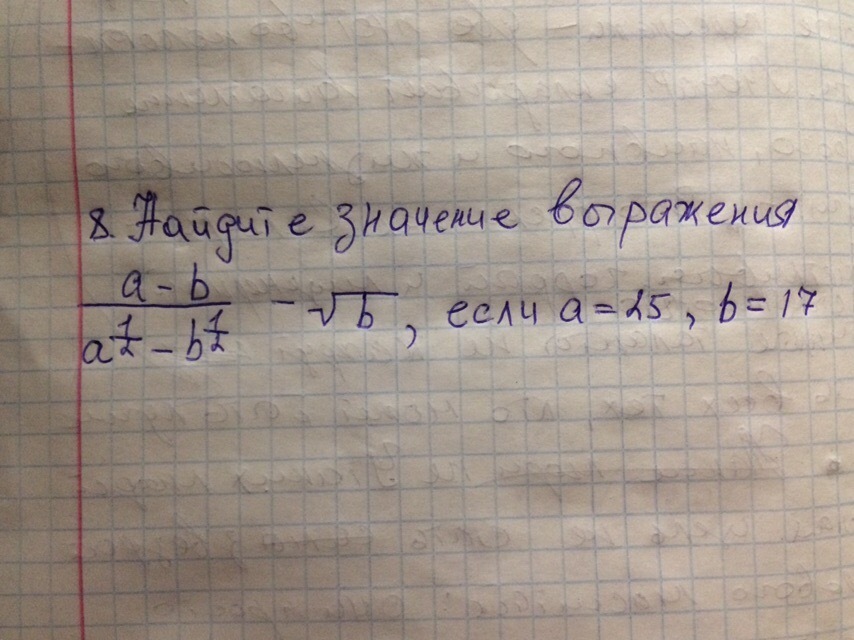 8. Найдите значение выражения
a - b
a^{1/2} - b^{1/2} - √b, если a = 25, b = 17